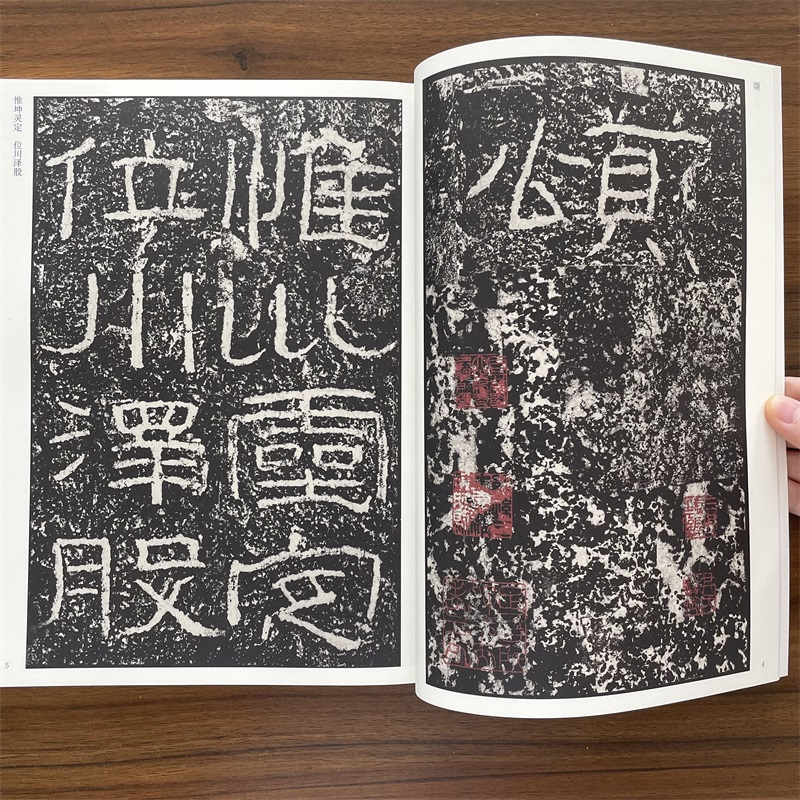 颂
頌
4
惟坤灵定 位川泽股
惟巛靈定
位川澤股
5